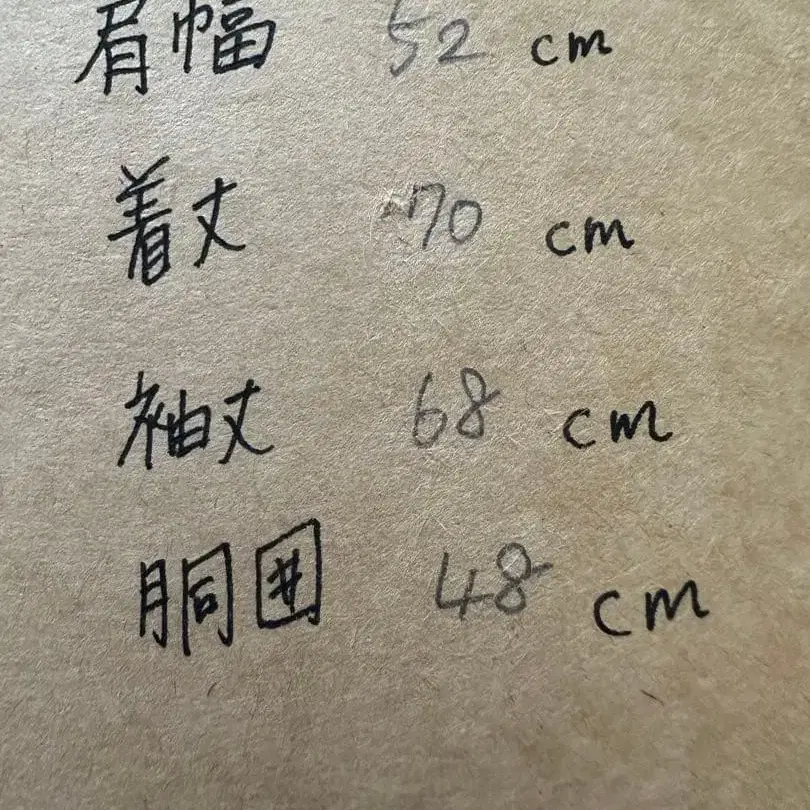 肩幅 52 cm
着丈 70 cm
袖丈 68 cm
胴囲 48 cm